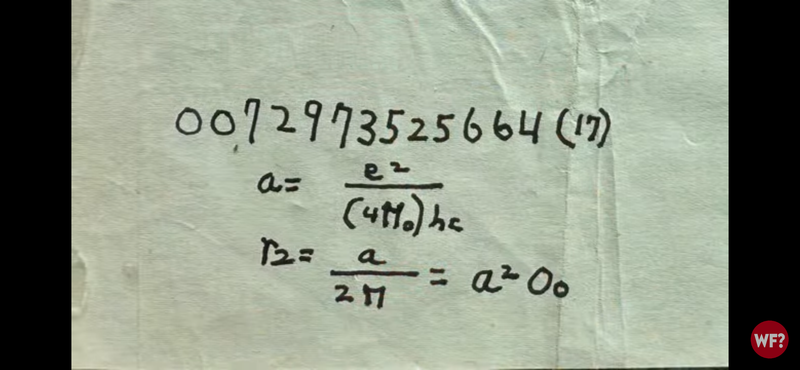 0072973525664(17)
a= e2/(4M0)hc
r2= a/2M = a2 O0
WF?